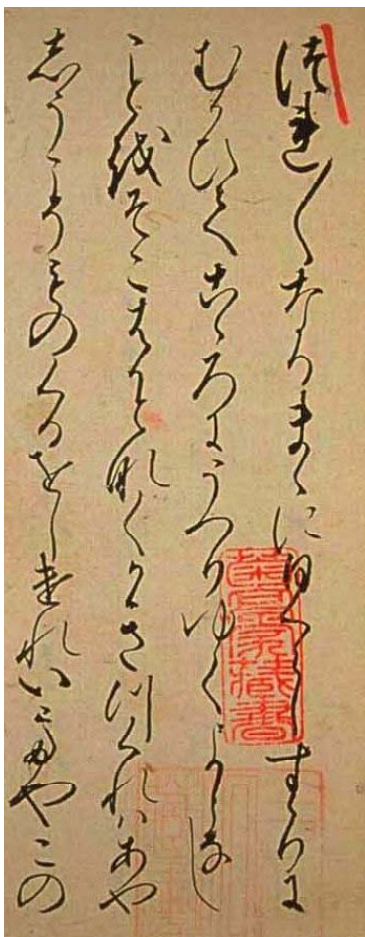 つれ〳〵なるまゝに日くらしすゝりに
むかひてこゝろにうつりゆくよしなし
ことをそこはかとなくかきつくれはあや
しうこそものくるをしけれいてやこの